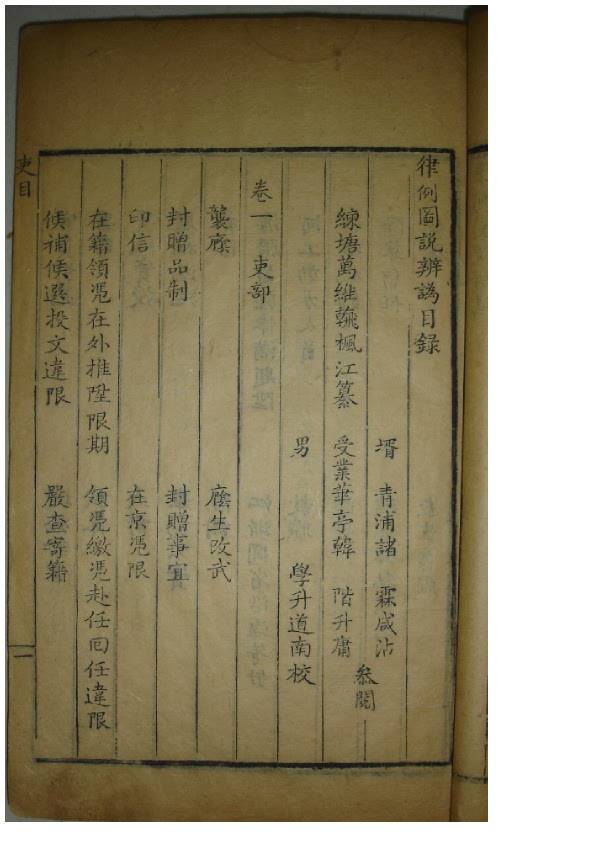 律例圖說辨譌目錄
壻　青浦諸　霖咸沾
練塘萬維翰楓江纂　受業華亭韓　階升庸
叅閱
男　學升道南校
卷一　吏部
襲廕　廕生改武
封贈品制　封贈事宜
印信　在京憑限
在籍領憑在外推陞限期　領憑繳憑赴任回任違限
候補候選投文違限　嚴查寄籍
吏目
一